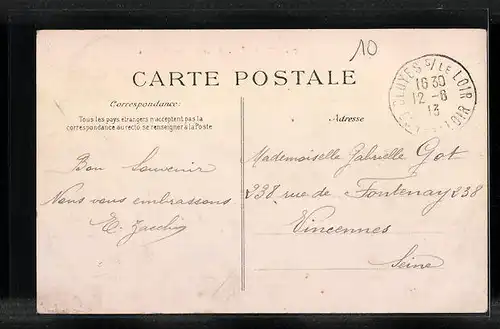 10
CLOYES S/ LE LOIR
16 30
12 - 8
13
CARTE POSTALE
Correspondance:
Tous les pays étrangers n'acceptent pas la
correspondance au recto se renseigner à la Poste
Adresse
Bon Souvenir
Nous vous embrassons
Mademoiselle Gabrielle Got
238 rue de Fontenay 238
Vincennes
Seine